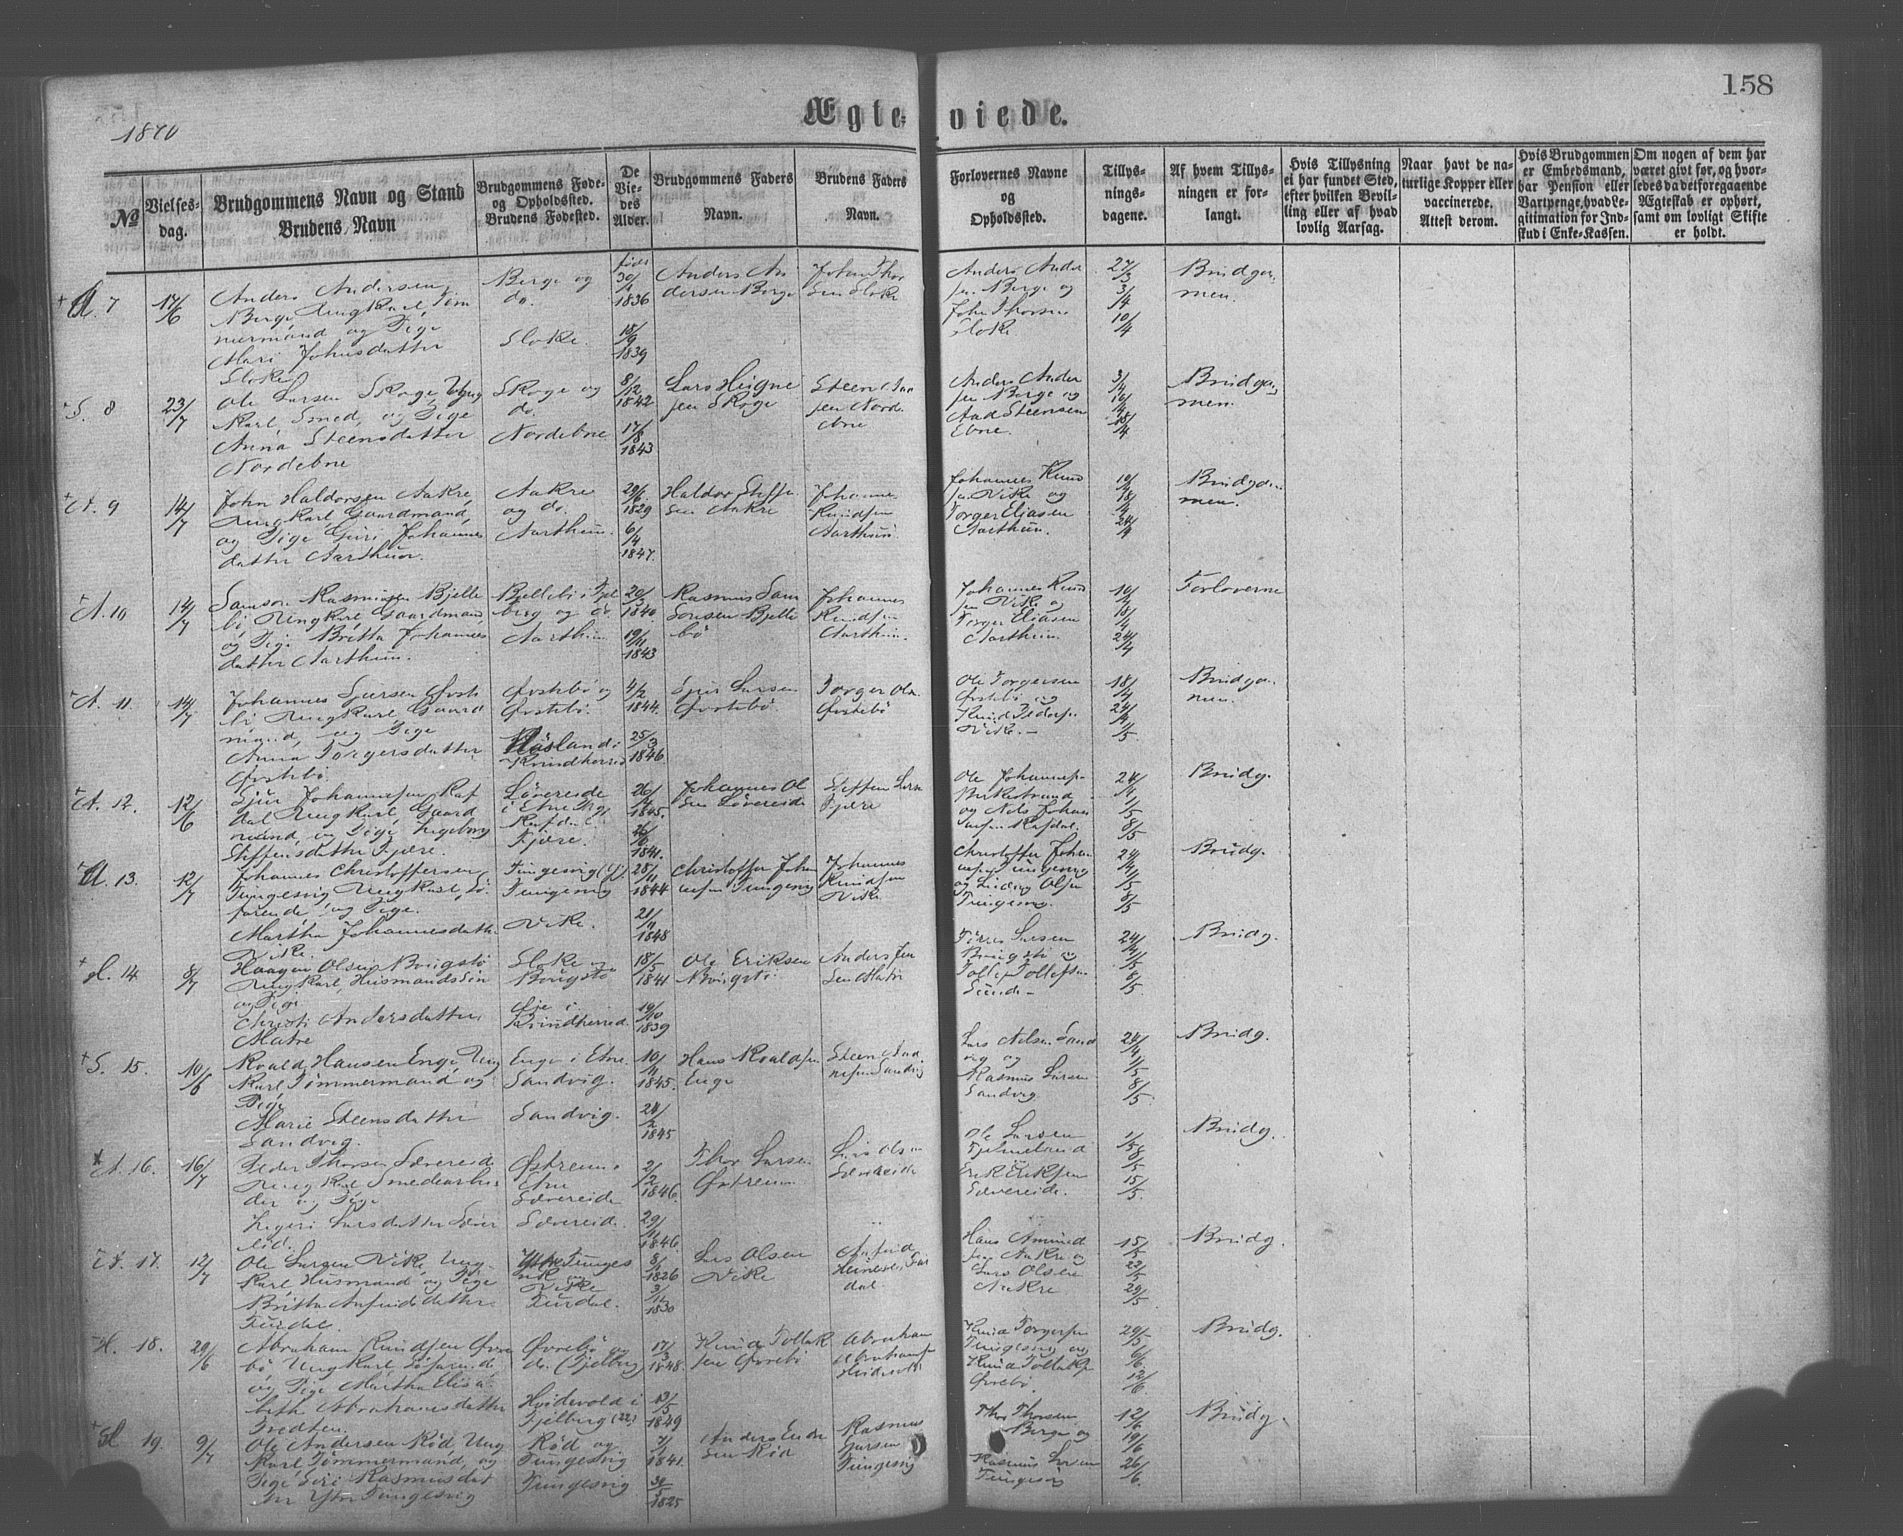 158
Ægte- viede.
1870
No
Vielses-
dag.
Brudgommens Navn og Stand
Brudens Navn
Brudgommens Føde-
og Opholdssted.
Brudens Fødested.
De
Vie-
des
Alder.
Brudgommens Faders
Navn.
Brudens Faders
Navn.
Forlovernes Navne
og
Opholdssted.
Tillys-
nings-
dagene.
Af hvem Tillys-
ningen er for-
langt.
Hvis Tillysning
ei har fundet Sted,
efter hvilken Bevil-
ling eller af hvad
lovlig Aarsag.
Naar havt de na-
turlige Kopper eller
vaccinerede.
Attest derom.
Hvis Brudgommen
er Embedsmand,
har Pension eller
Vartpenge, hvad Le-
gitimation for Ind-
skud i Enke-Kassen.
Om nogen af dem har
været gift før, og hvor-
ledes da det foregaaende
Ægteskab er ophørt,
samt om lovligt Skifte
er holdt.
7 17/6
Anders Andersen
Berge Ungkarl Tøm
mermand og Pige
Mari Johnsdatter
Sloke
Berge og
do.
Sloke.
født
1836
18/9
1839
Anders An
dersen Berge
John Thor
sen Sloke
Anders Ander
sen Berge og
John Thorsen
Sloke
27/3
3/4
10/4
Brudgom
men.
S. 8 23/7
Ole Larsen Skoge Ung
karl, Smed, og Pige
Anna Steensdatter
Nordebne
Skoge og
do.
Nordebne
8/12
1842
17/8
1843
Lars Heigne
sen Skoge
Anders Ander
sen Berge og
Aad Steensen
Ebne.
3/4
10/4
18/4
Brudgom
men.
9 14/7
John Haldorsen Aakre
Ungkarl, Gaardmand,
og Pige Guri Johannes
datter Aarthun.
Aakre
og do.
Aarthun.
29/6
1829
6/4
1847.
Haldor Steffen
sen Aakre
Johannes
Knudsen
Aarthun
Johannes Knud
sen Vike og
Torger Eliasen
Aarthun.
10/4
18/4
24/4
Brudgom
men.
A. 10 14/7
Samson Rasmusen Bjelle
bø Ungkarl Gaardmand
og Pige Britta Johannes
datter Aarthun.
Bjellebø i Fjel
berg og do
Aarthun
20/3
1840
19/11
1843
Rasmus Sam
sonsen Bjelle
bø
Johannes
Knudsen
Aarthun.
Johannes Knud
sen Vike og
Torger Eliasen
Aarthun
10/4
18/4
24/4
Forloverne
A. 11. 14/7
Johannes Sjursen Øvste
bø Ungkarl Gaard
mand, og Pige
Anna Torgersdatter
Øvstebø.
Øvstebø og
Øvstebø.
Kvindherred
4/2
1844.
25/3
1846.
Sjur Larsen
Øvstebø
Torger Olsen
Øvstebø
Ole Torgersen
Øvstebø og
Vike.
18/4
24/4
1/5
Brudgom
men.
12. 12/6
Sjur Johannesen Raf
dal Ungkarl, Gaard
mand, og Pige Ingeborg
Steffensdatter Fjære.
Løvereide
i Etne og
Rafdal
Fjære.
26/4
1845.
26/6
1841.
Johannes Ol
sen Løvereide
Steffen Larsen
Fjære
Ole Johannesen
Birkestrand
og Nils Johan
nesen Rafdal.
24/4
1/5
8/5
Brudg.
13. 12/7
Johannes Christoffersen
Tungesvig Ungkarl, Sø
farende, og Pige.
Martha Johannesdatter
Vike.
Tungesvig
Tungesvig
Vike.
25/11
1844
21/11
1848
Christoffer Johan
nesen Tungesvig
Johannes
Knudsen
Vike
Christoffer Johan
nesen Tungesvig
og Ludvig Olsen
Tungesvig.
24/4
1/5
8/5
Brudg.
14 8/7
Haagen Olsen Brigstø
Ungkarl, Husmandssøn
og Pige
Christi Andersdatter
Matre
Sloke og
Øie i
Kvindherred.
18/5
1841
19/10
1839
Ole Eriksen
Anders Jen
sen Matre
Larsen
Tollef Tollefsen
Sunde
24/4
1/5
8/5
Brudg.
S. 15. 10/6
Roald Hansen Enge, Ung
karl Tømmermand og
Pige
Marie Steensdatter
Sandvig.
Enge i Etne
Sandvig.
Sandvig.
10/11
1845.
24/2
1845
Hans Roaldsen
Enge
Lars Nilsen Sand
vig og
Rasmus Larsen
Sandvig
24/4
1/5
8/5
Brudg.
A. 16. 16/7
Peder Thorsen Sævereide
Ungkarl Smedearbei
der og Pige
Ingeri Larsdatter Sæver
eid.
Østreim i
Etne
Sævereide
Sævereid.
2/2
1846.
29/11
1846.
Thor Larsen
Østreim
Lars Olsen
Sævereide
Ole Larsen
Erik Eriksen
Sævereide.
1/5
8/5
15/5
Brudg.
17. 12/7
Ole Larsen Vike, Ung
karl Husmand og Pige
Britta Anfindsdatter
Furdal.
Vike
Furdal.
8/1
1826
3/11
1830
Lars Olsen
Vike
Hans Amund
sen Aakre og
Lars Olsen
Aakre
15/5
22/5
29/5
Brudg.
H. 18. 29/6
Abraham Knudsen Øvre
bø Ungkarl Søfarende
og Pige Martha Elisa
beth Abrahamsdatter
Tredten.
Øvrebø og
do. (Fjelberg
Høidevold i
Fjelberg (22)
17/3
1848.
13/5
1849
Knud Tollak
sen Øvrebø
Abraham
Abrahamsen
Knud Torgersen
Tungesvig og
Knud Tollaksen
Øvrebø.
29/5
6/6
12/6
Brudg.
19. 9/7
Ole Andersen Rød, Ung
karl Tømmermand, og
Pige Siri Rasmusdat
ter Ytre Tungesvig
Rød og
Tungesvig
Tungesvig
7/1
1841.
1825
Anders Endre
sen Rød
Rasmus
Larsen
Tungesvig
Thor Thorsen
Berge og
Rasmus Larsen
Tungesvig
12/6
19/6
26/6.
Brudg.